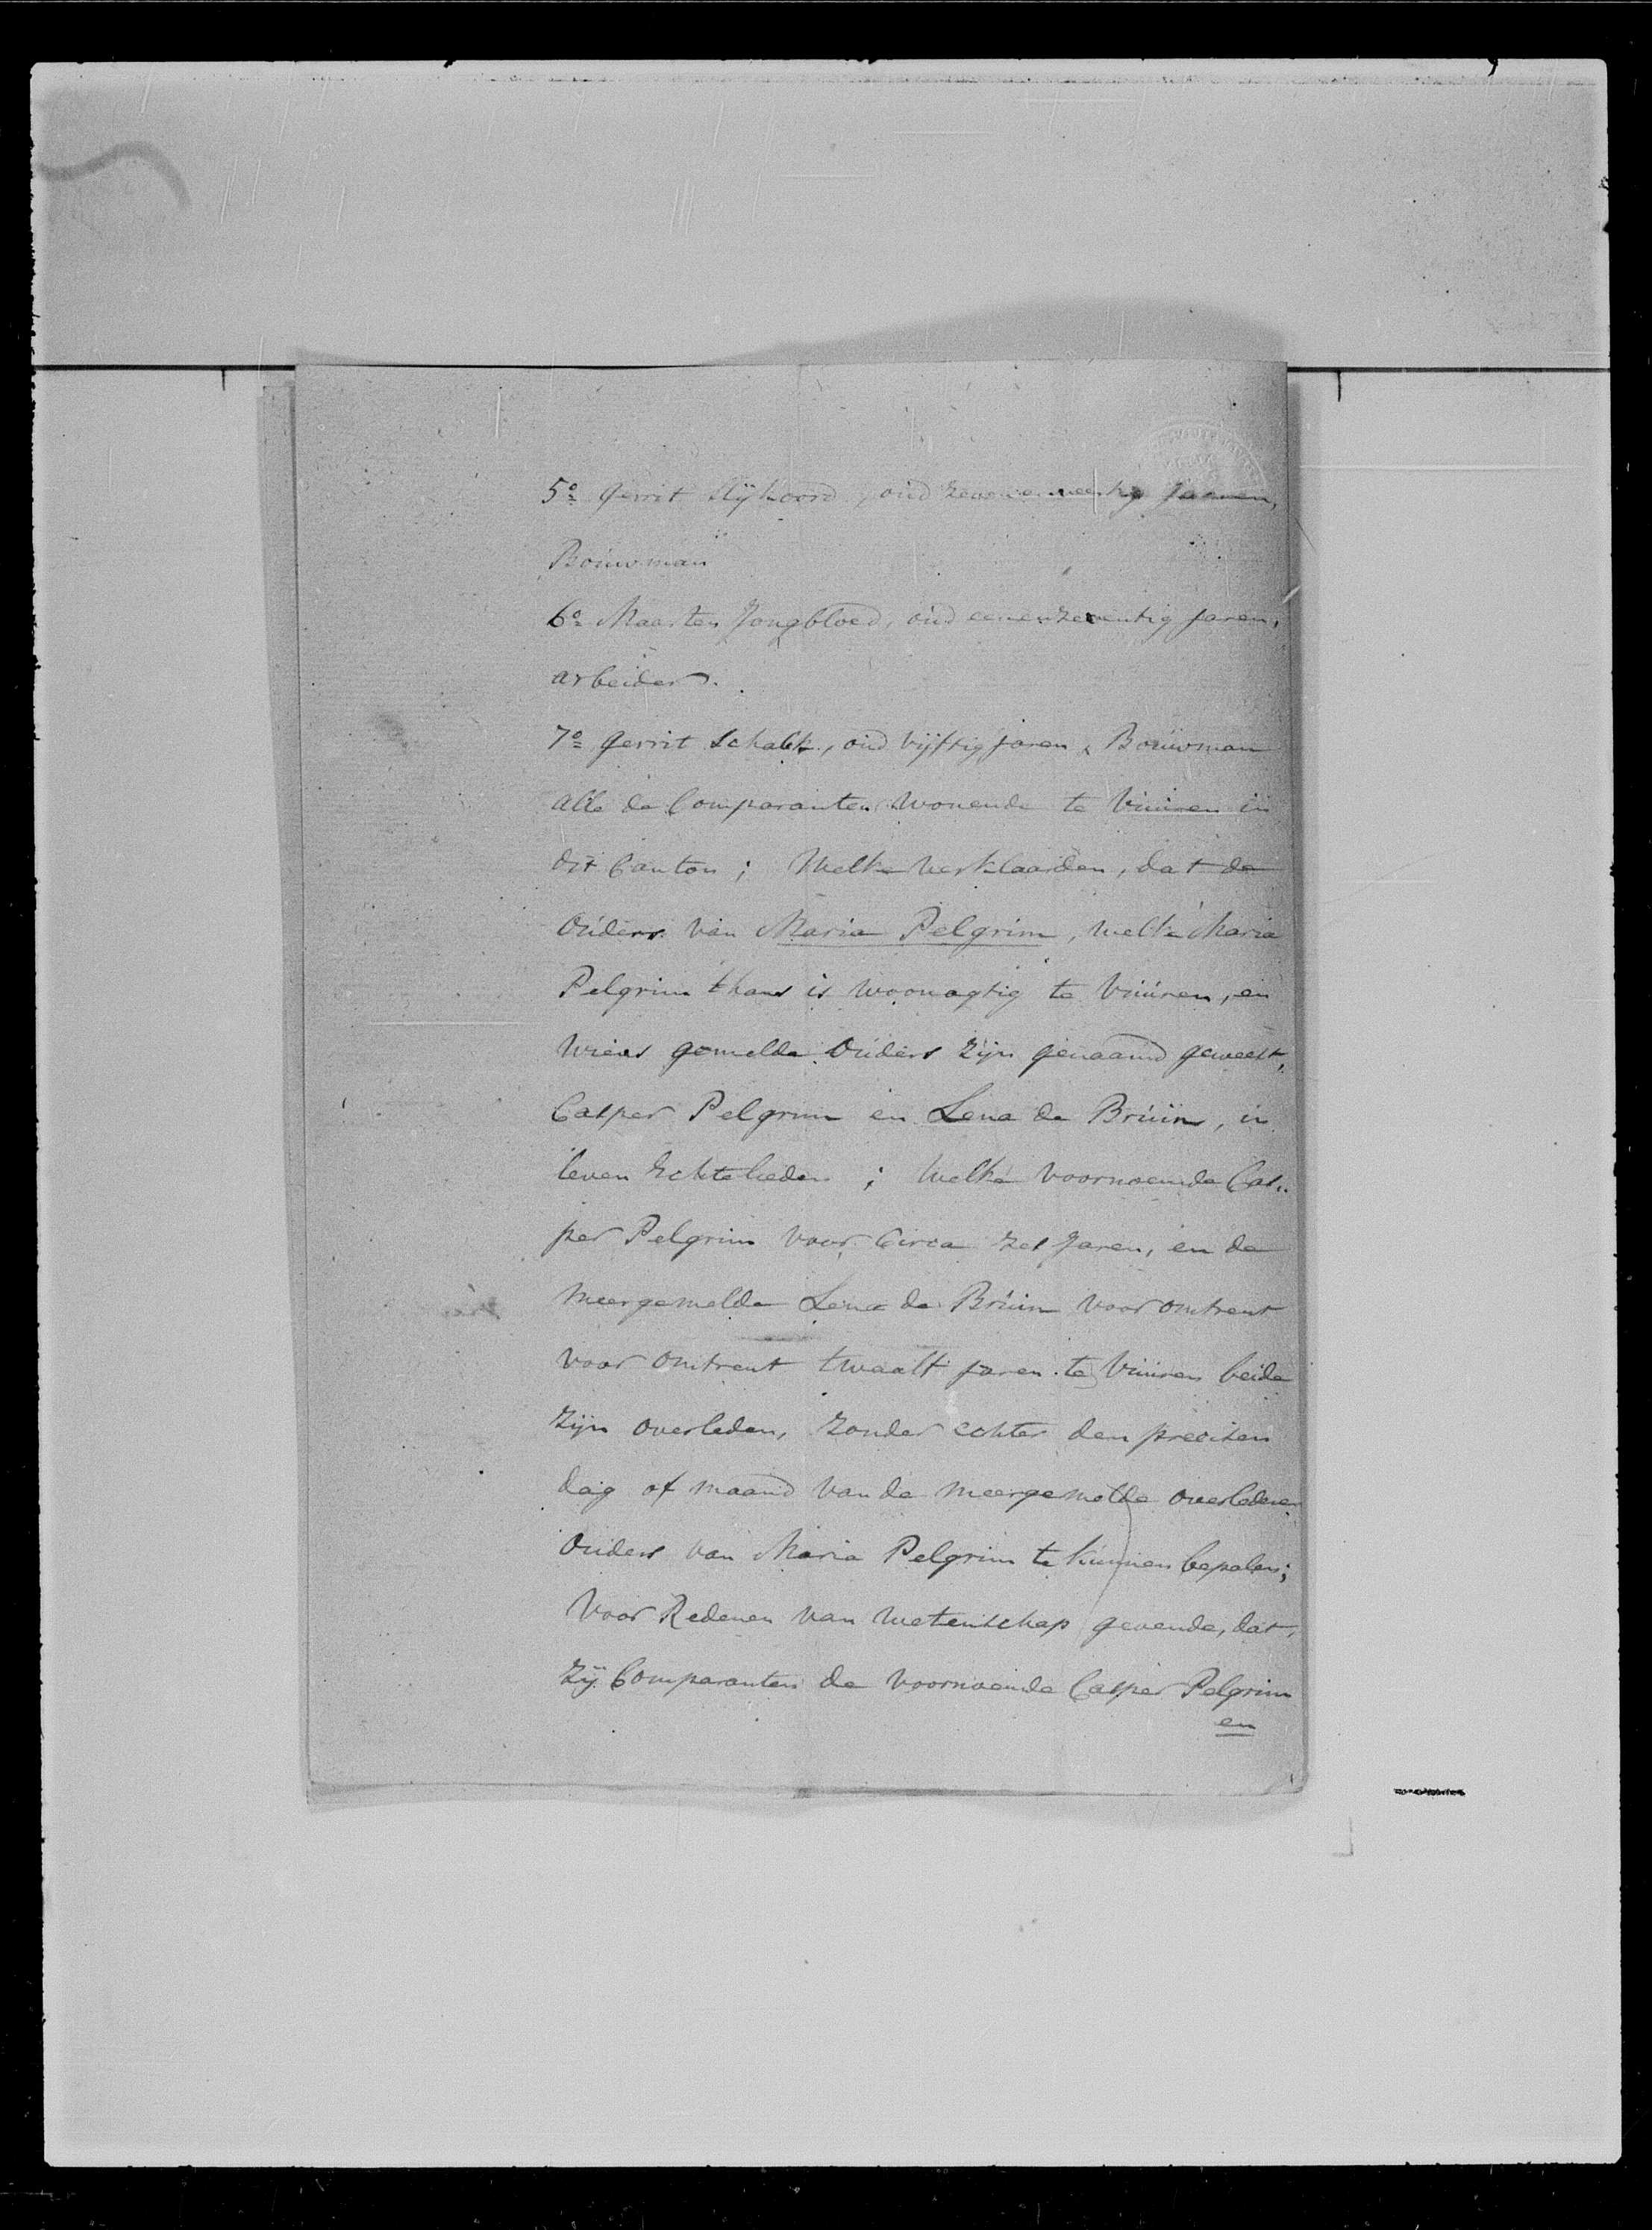 5o Gerrit oud jaaren,
Bouwman
6o Maarten Jongbloed, oud eenenzeventig jaren,
arbeider.
7o Gerrit Schalk, oud vijftig jaren, Bouwman
alle de Comparanten wonende te Vuuren in
dit Canton; Welke verklaarden, dat de
Ouders van Maria Pelgrim, welke Maria
Pelgrim thans is woonagtig te Vuuren, en
wiens gemelde Ouders zijn genaamd geweest,
Casper Pelgrim en Lena de Bruin, in
leven Echtelieden; Welke voornoemde Cas„
per Pelgrim voor Circa zes Jaren, en de
meergemelde Lena de Bruin voor omtrent
voor omtrent twaalf jaren te Vuuren beide
zijn overleden, zonder echter den precisen
dag of maand van de meergemelde overledene
Ouders van Maria Pelgrim te kunnen bepalen;
Voor Redenen van wetenschap gevende, dat,
zij Comparanten de voornoemde Casper Pelgrim
en